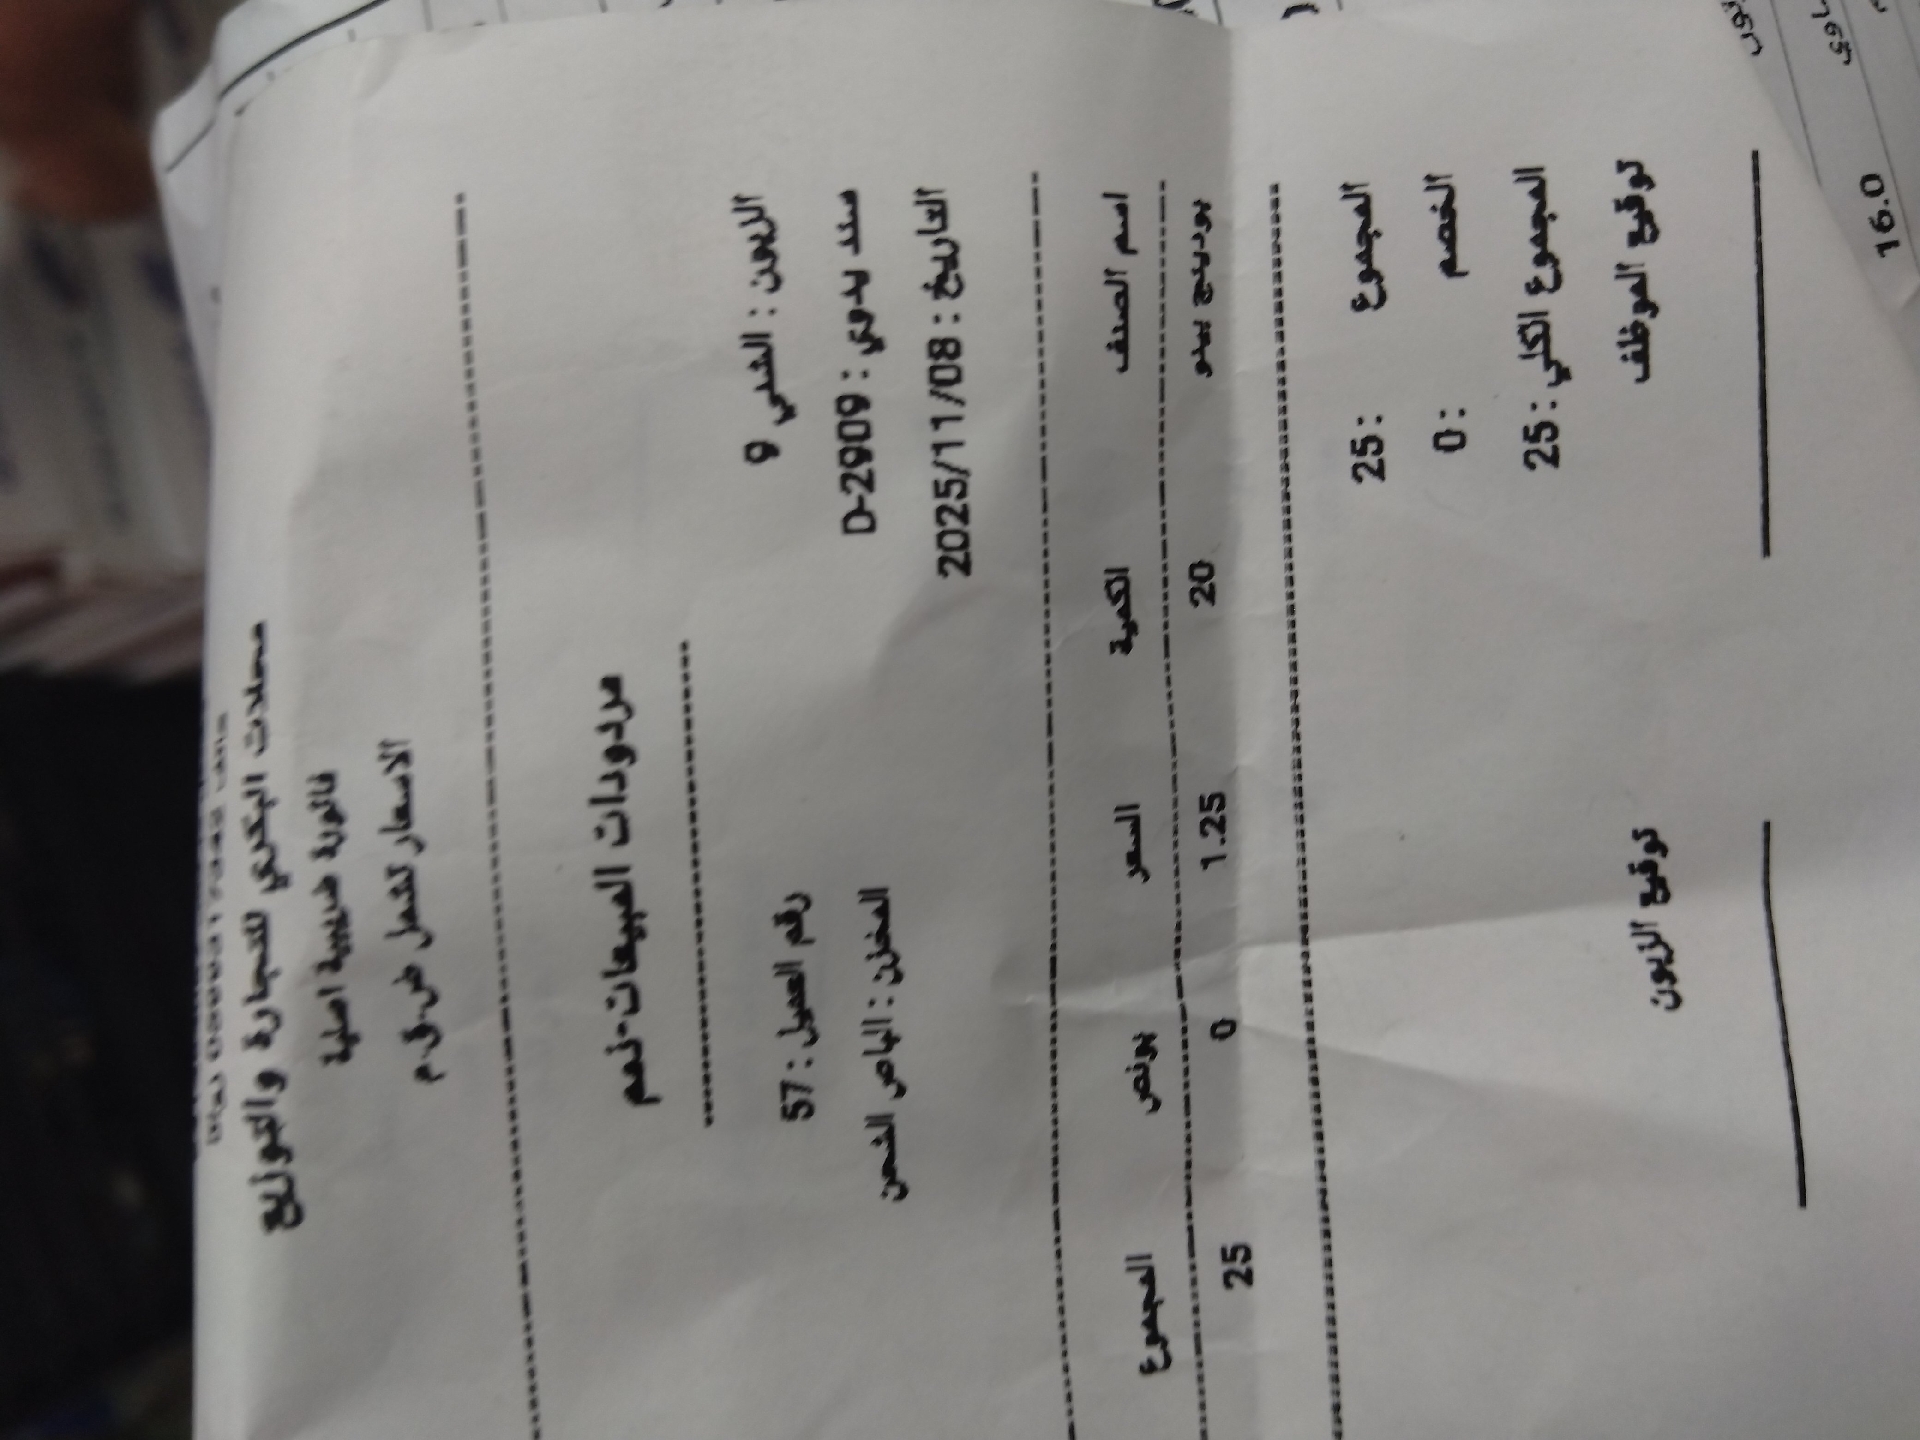 محلات البكري للتجارة والتوزيع
فاتورة ضريبية اصلية
الاسعار تشمل ض.ق.م
مردودات المبيعات-نعم
الزبون : الشلبي 9
رقم العميل : 57
سند يدوي : D-2909
المخزن : الباص الشحن
التاريخ : 2025/11/08
اسم الصنف الكمية السعر بونص المجموع
بودينج بينو 20 1.25 0 25
المجموع : 25
الخصم : 0
المجموع الكلي : 25
توقيع الموظف توقيع الزبون
16.0